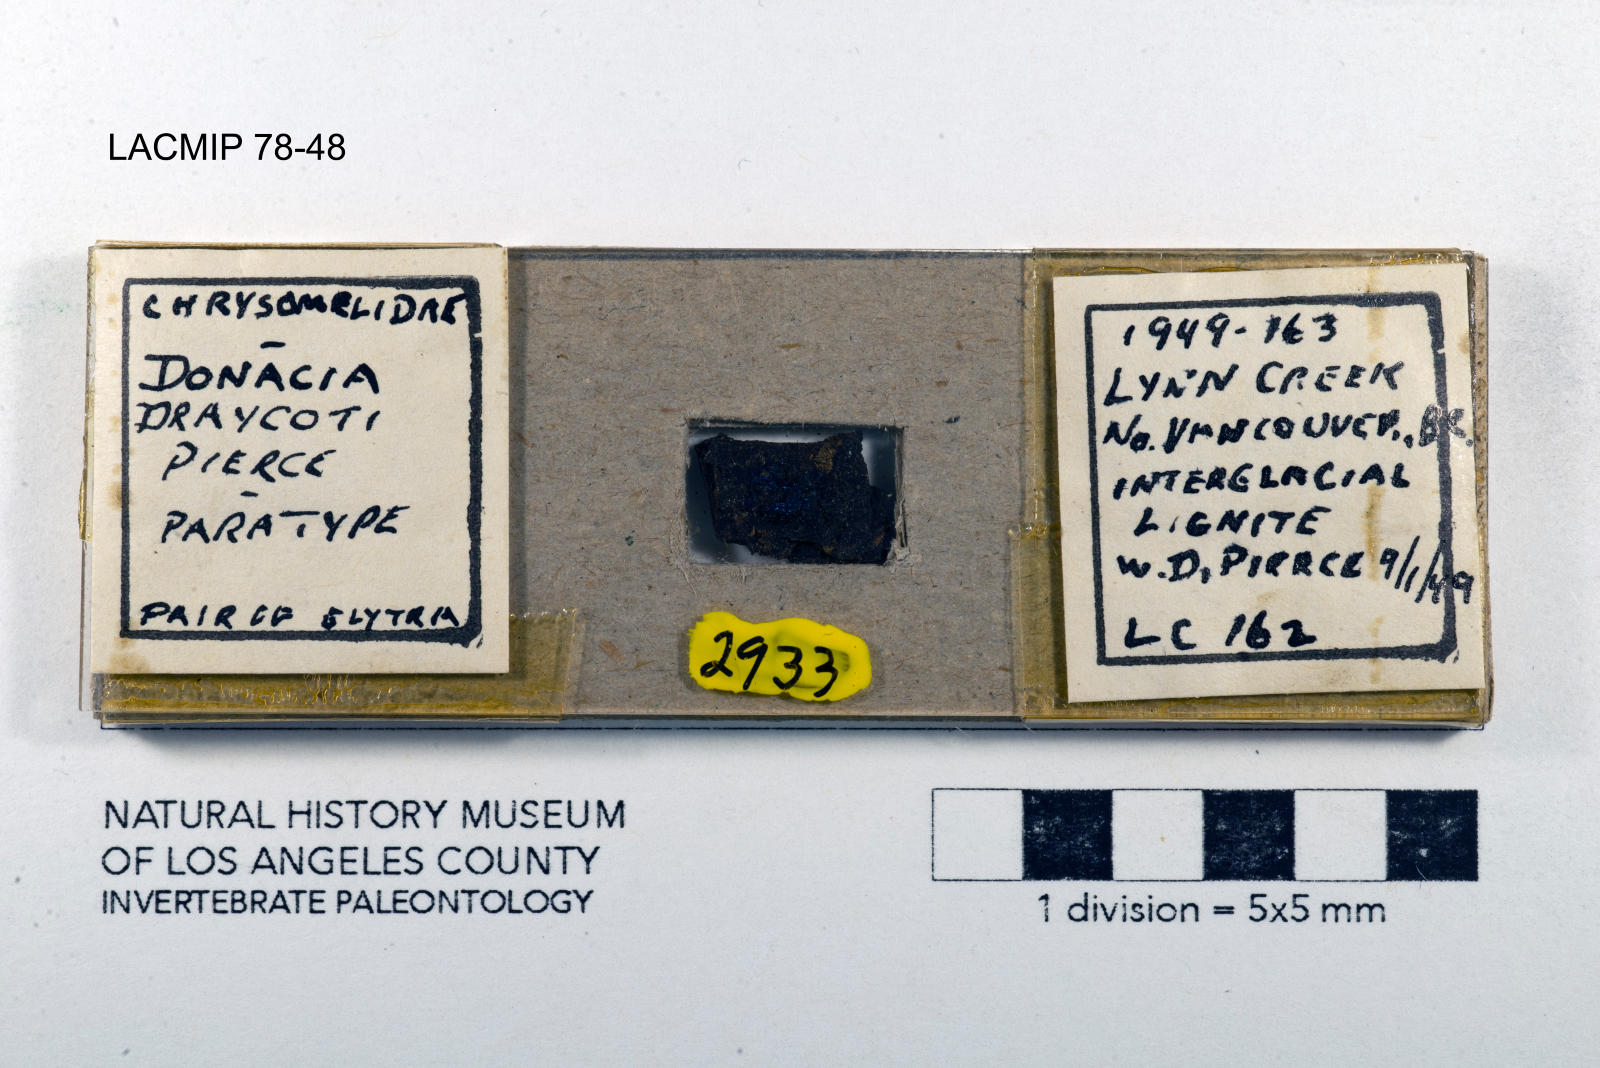 LACMIP 78-48
CHRYSOMELIDAE
-
DONACIA
DRAYCOTI
PIERCE
-
PARATYPE
PAIR OF ELYTRA
2933
1949-163
LYNN CREEK
No. VANCOUVER., BC.
INTERGLACIAL
LIGNITE
W.D. PIERCE 9/1/49
LC 162
NATURAL HISTORY MUSEUM
OF LOS ANGELES COUNTY
INVERTEBRATE PALEONTOLOGY
1 division = 5x5 mm